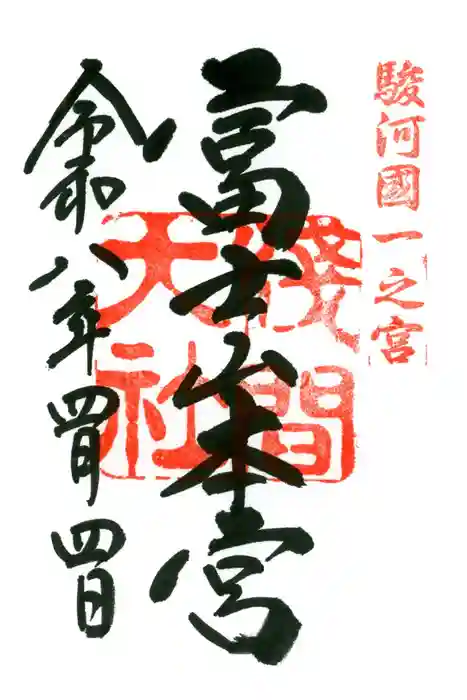 駿河國一之宮
富士山本宮
淺間
大社
令和八年四月四日